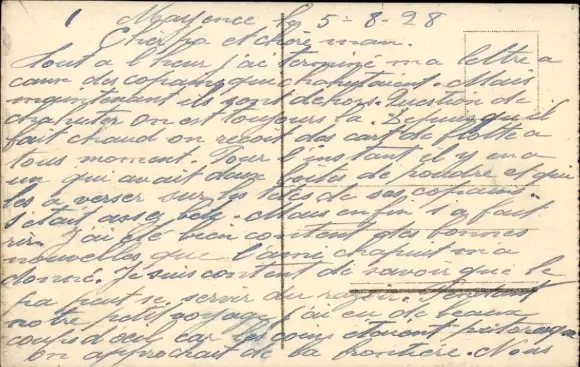 1 Mayence le 5-8-28
Cher pa et chère man.
Tout a l'heur j'ai terminé ma lettre a
caus des copains qui chahutaient. Mais
maintenant ils sont dehors. Question de
chahuter on est toujours la. Depuis qu'il
fait chaud on reçoit des de flotte a
tous moment. Pour l'instant il y en a
un qui avait deux boites de poudre et qui
les a verser sur les têtes de ses copains.
s'était assez . Mais enfin s a fait
rire. J'ai été bien content des bonnes
nouvelles que l'ami m'a
donné. Je suis content de savoir que le
pa peut se servir du rasoir. Pendant
notre petit voyage j'ai eu de beaux
coups d'œil car les coins étaient pittoresque
on approchait de la frontière. Nous